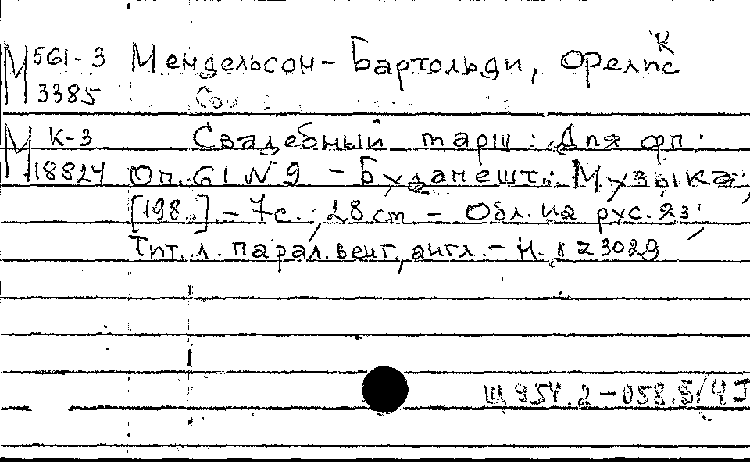 М 561-3 Мендельсон-Бартольди, Фреликс
3385
М К-3 Свадебный марш: Для фп.
18824 Оп. 61 № 9 - Будапешт: Музыка,
[198.] - 7 с.; 28 cm - Обл. на рус. яз.,
Тит. л. парал. венг., англ. - Н. д. Z 3029
Щ 954.2-058.5/4J